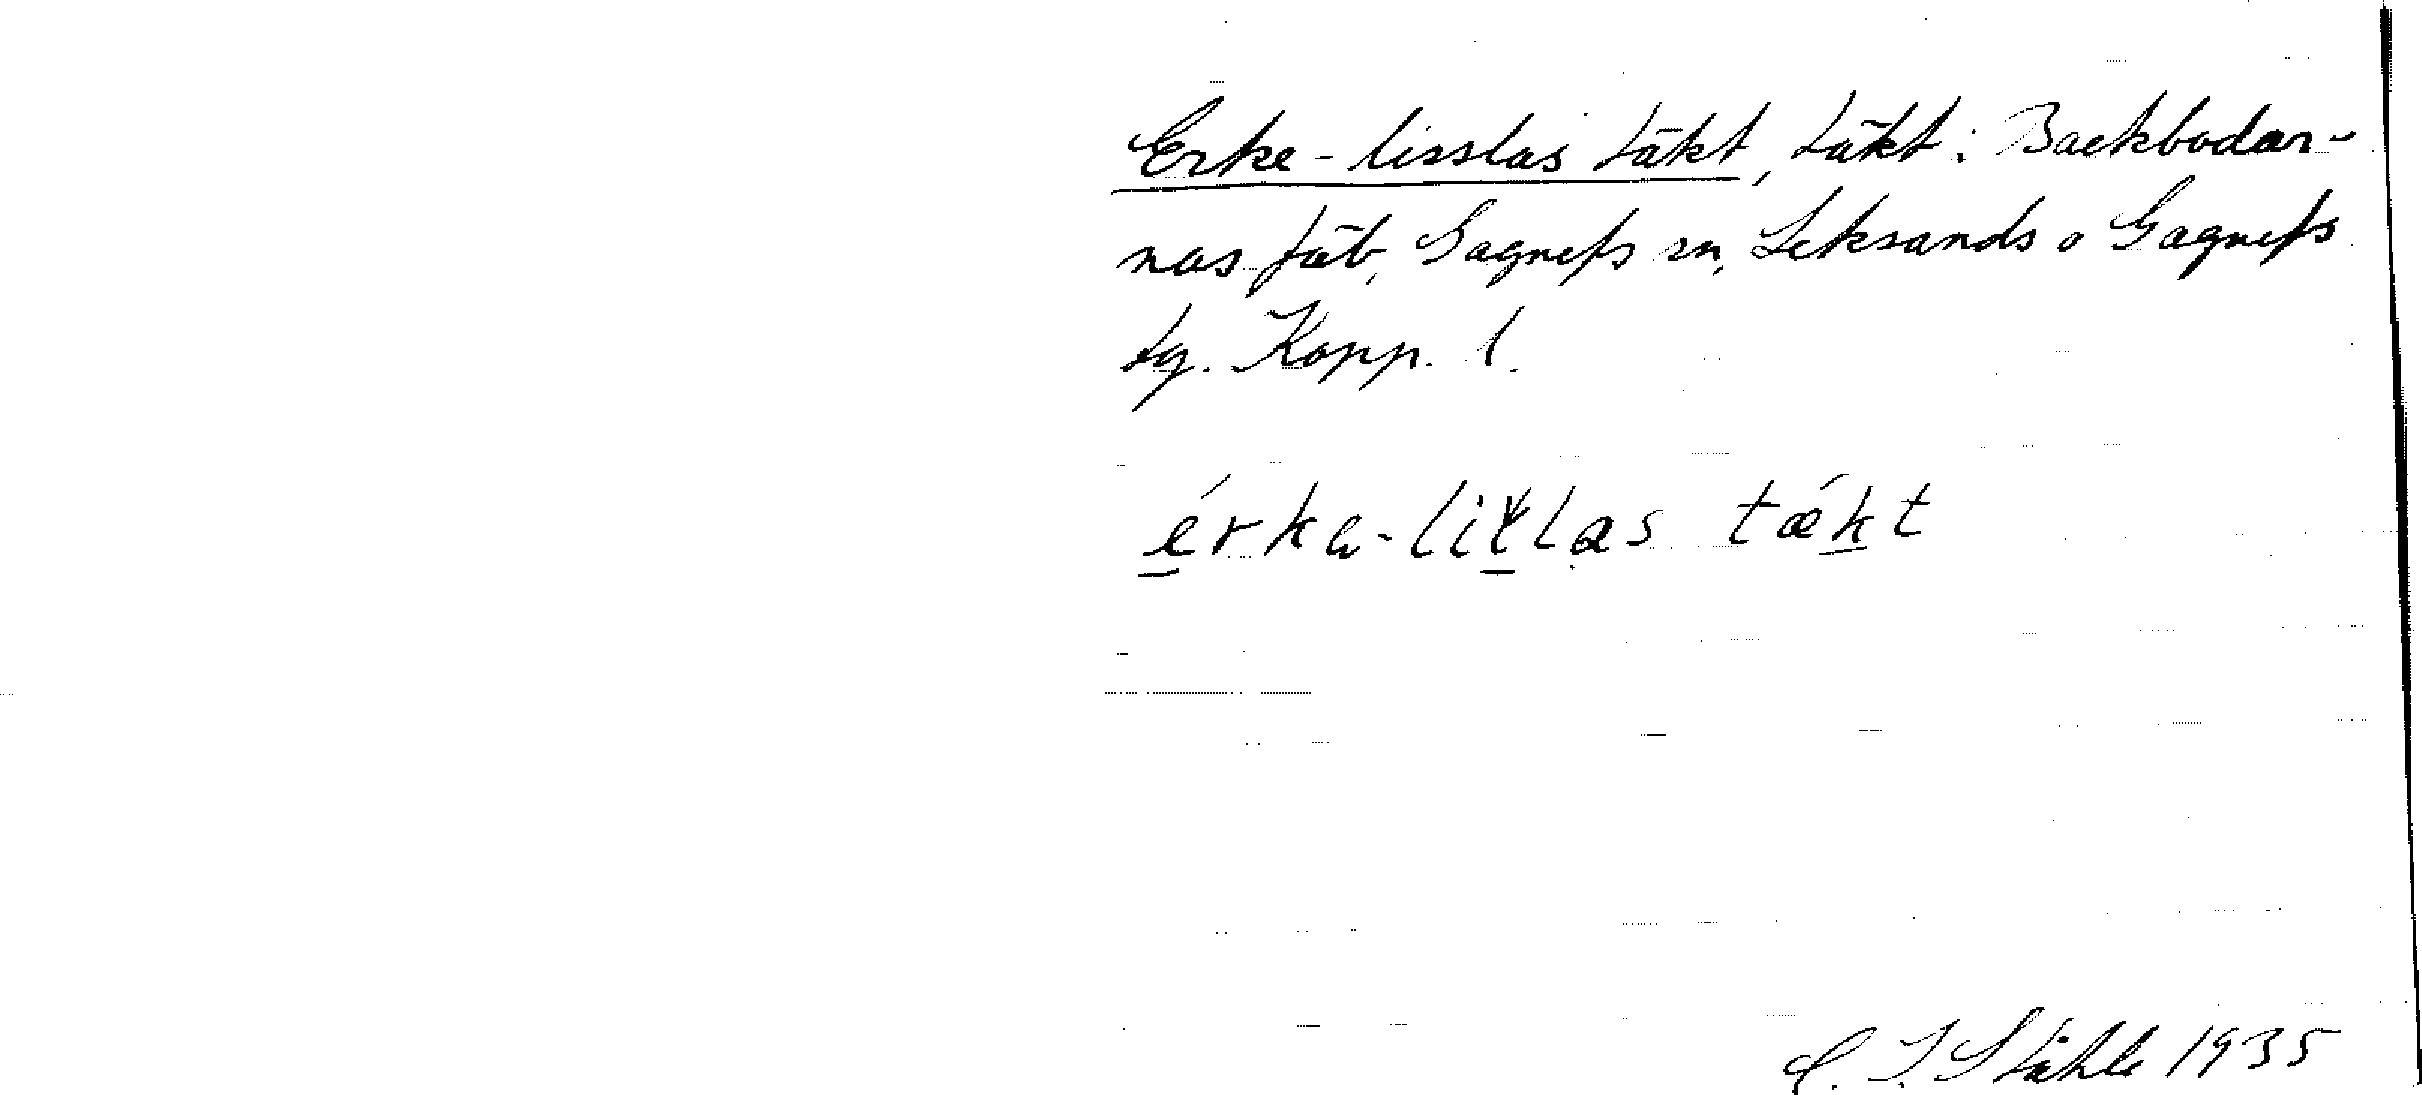 Erke-lisslas täkt, täkt: Backbodar-
nas fäb, Gagnefs sn, Leksands o Gagnefs
tg. Kopp. l.
érka-liłlas tækt
C. I. Ståhle 1935